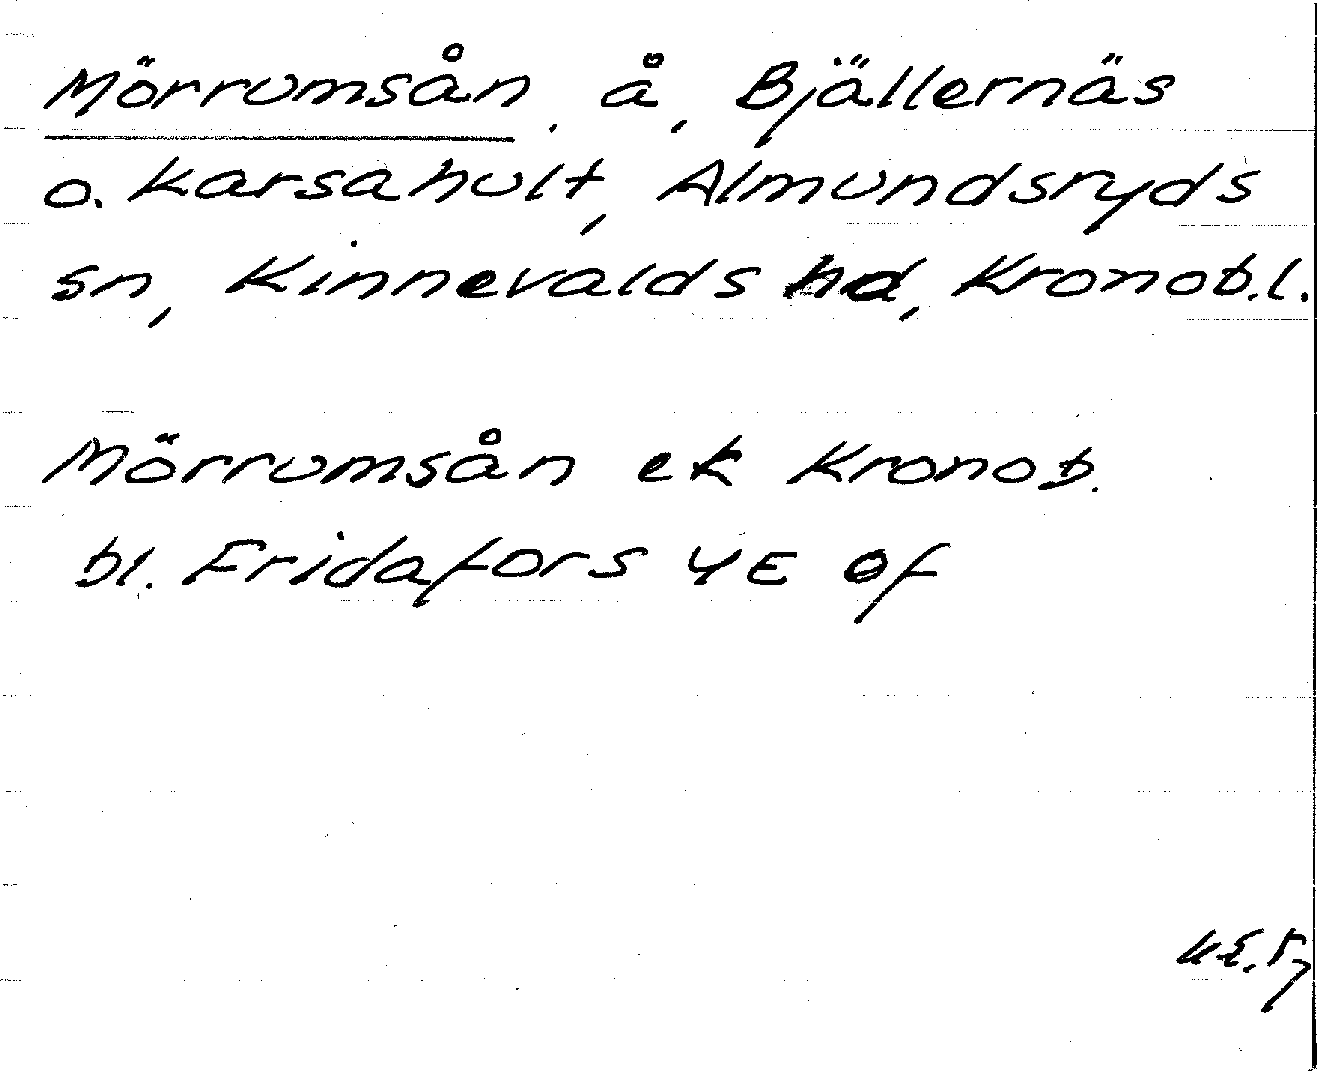 Mörrumsån, å, Bjällernäs
o. Karsahult, Almundsryds
sn, Kinnevalds hd, Kronob.l.
Mörrumsån ek Kronob.
bl. Fridafors 4E øf